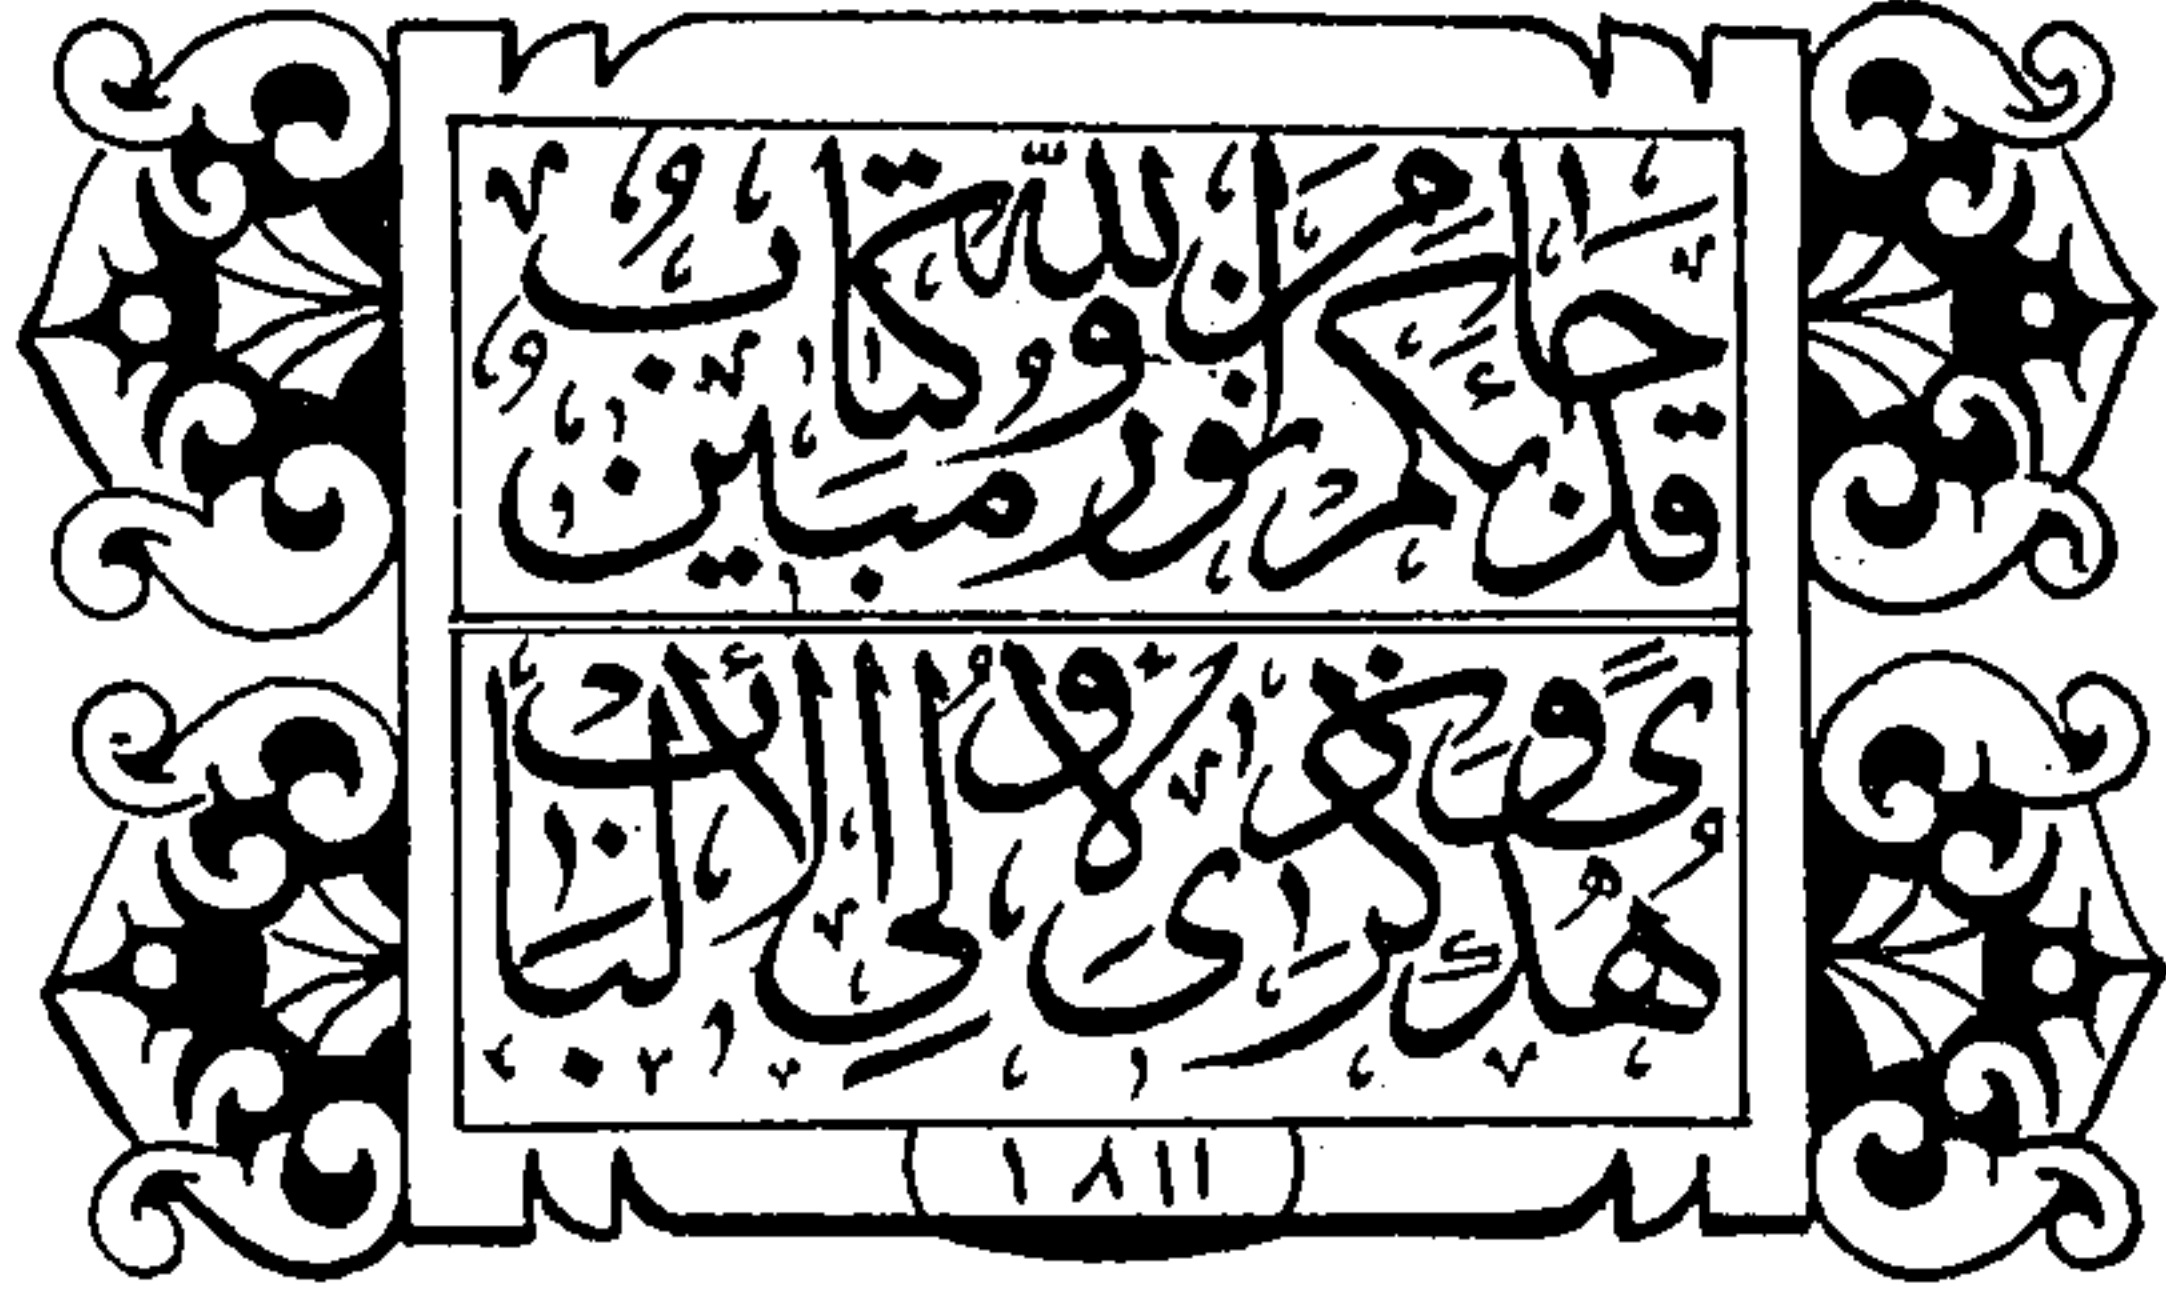 قد جاءكم من الله نور وكتاب مبين
هدى وذكرى لأولي الألباب
١٨١١